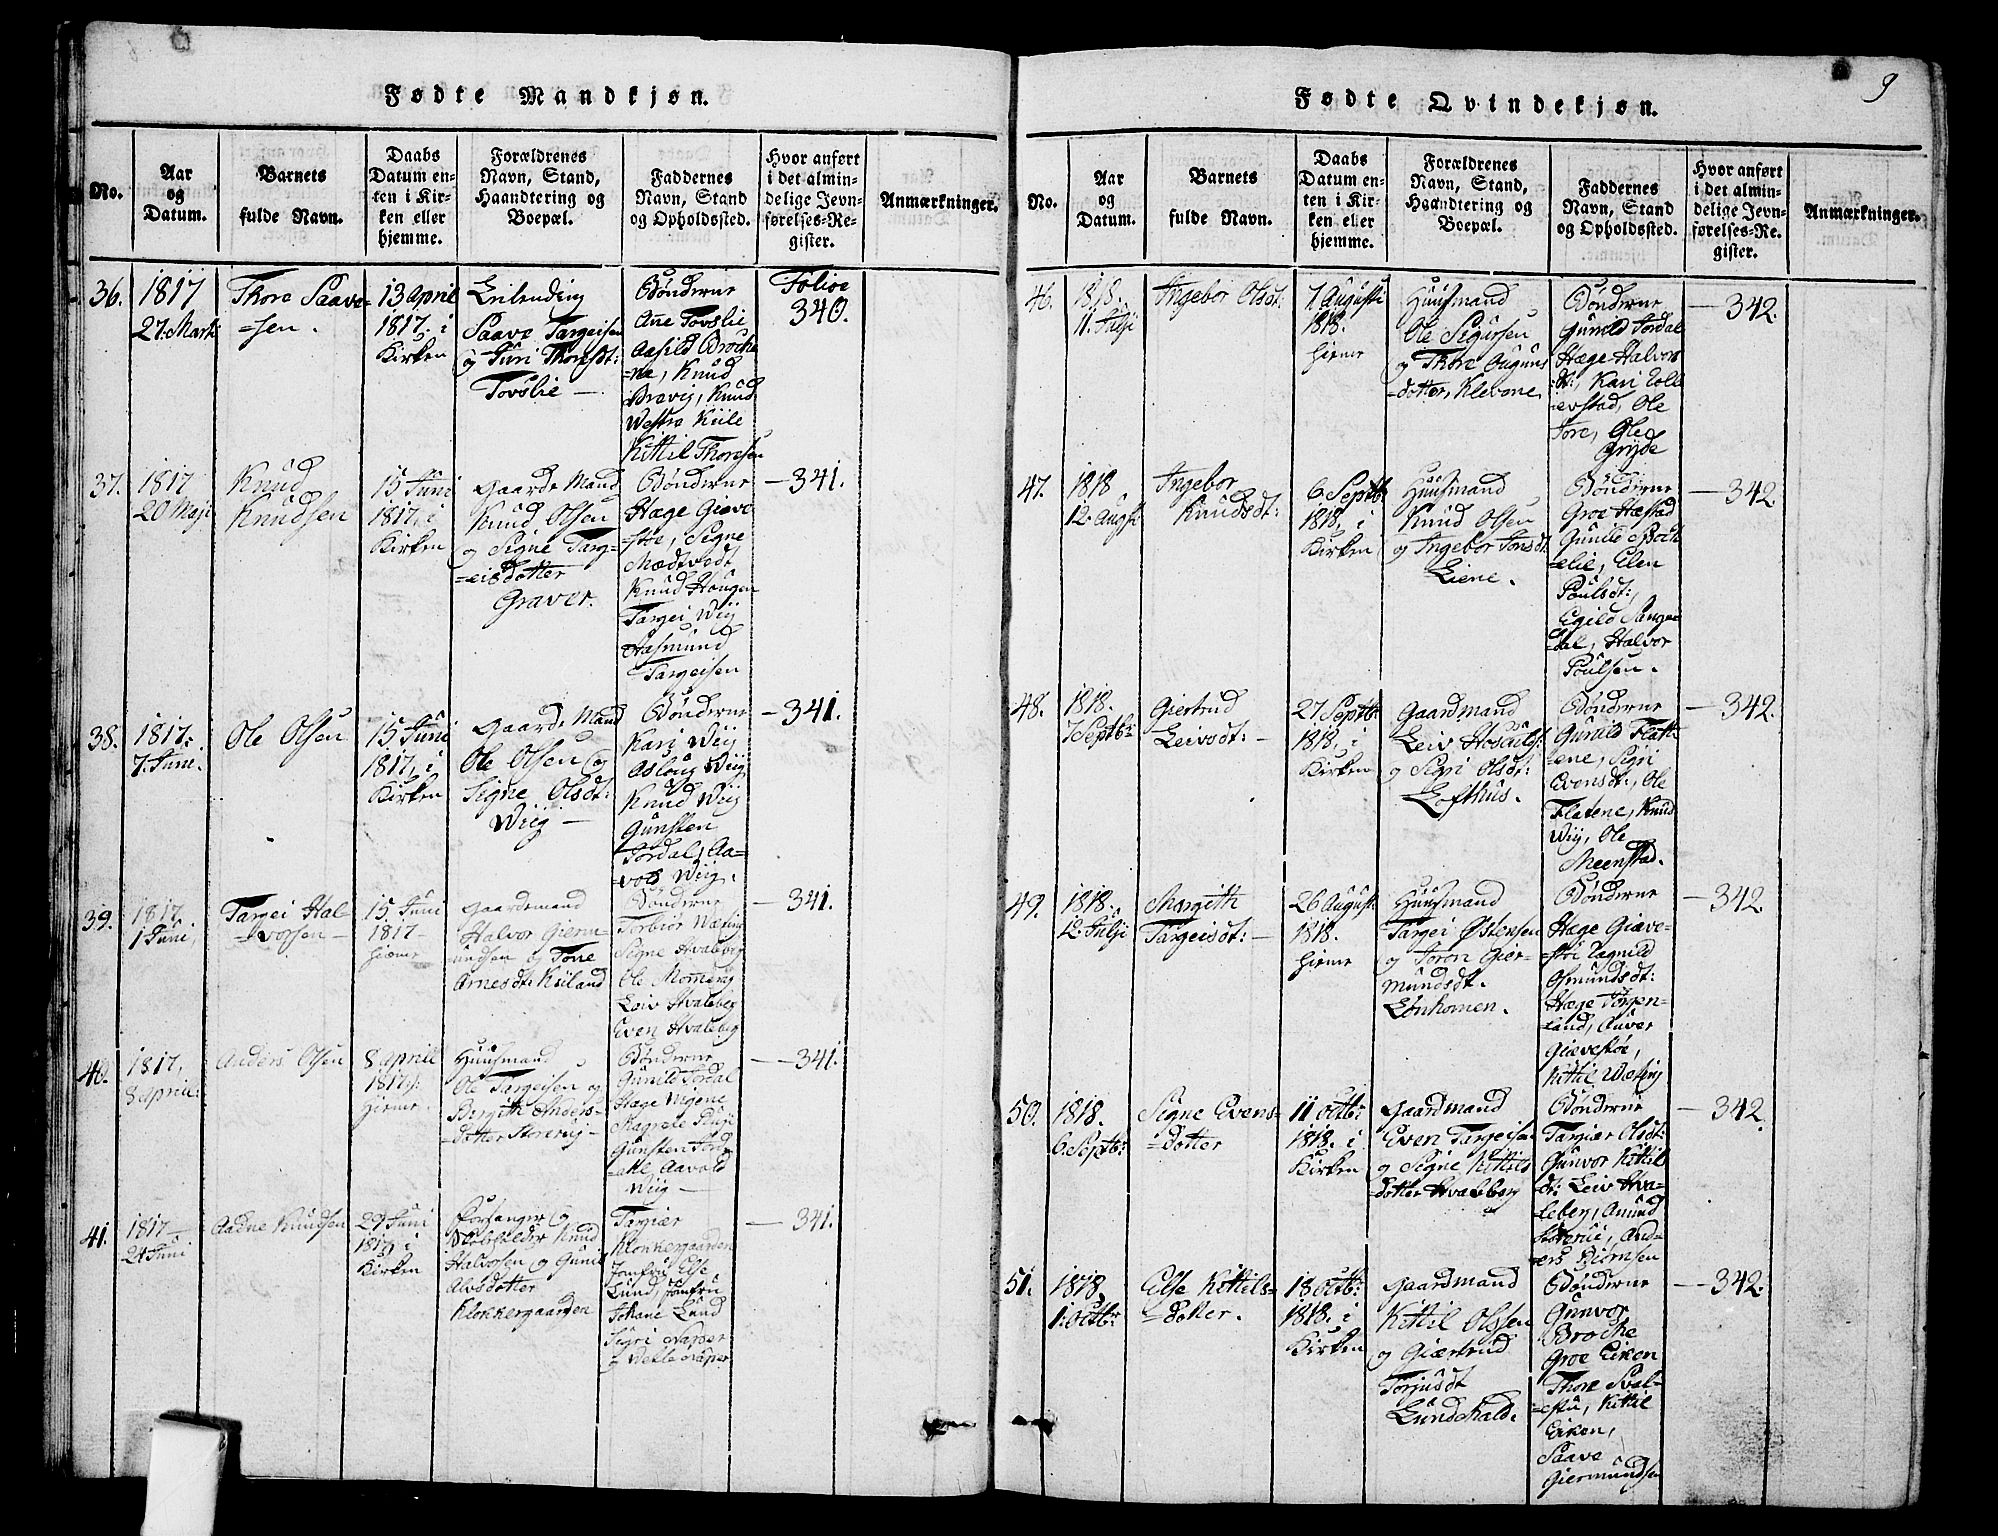 9
Fødte Mandkjøn.
No.
Aar og Datum.
Barnets fulde Navn.
Daabs Datum enten i Kirken eller hjemme.
Forældrenes Navn, Stand, Haandtering og Boepæl.
Faddernes Navn, Stand og Opholdssted.
Hvor anført i det almindelige Jevnførelses-Register.
Anmærkninger.
36.
1817
27. Marti
Thore Saave=
=sen.
13 April
1817. i
Kirken
Leilending
Saave Targeisen
og Juri Thorsdt:
Tovslie
Bønderne
Ane Tovslie
Aasild Broche
=ne, Knud
Brevig, Knud
Westre Kiile
Kittil Thoresen
Folioe
340.
37.
1817
20 Maji
Knud
Knudsen
15 Juni
1817, i
Kirken
Gaarde Mand
Knud Olsen
og Signe Targ=
=eisdotter
Graver.
Bønderne
Hæge Giæve
=støe, Signe
Mædtvedt
Knud Haugen
Targei Wiig
Aasmund
Targeisen
341.
38.
1817.
7. June.
Ole Olsen
15 Juni
1817, i
Kirken
Gaarde Mand
Ole Olsen og
Signe Olsdt:
Wiig
Bønderne
Kari Wiig
Asloug Wiig
Knud Wiig
Gunsten
Jordal, Aa=
=vod Wiig.
341.
39.
1817.
1 Juni,
Targei Hal
=vorsen
15. Juni
1817
Hiemme
Gaardemand
Halvor Giermundsen og Tone
Arnesdt: Kiiland
Bønderne
Torbiør Wæting
Signe Hvaleberg
Ole Mommerag
Leiv Hvaleberg
Even Hvaleberg
341.
40.
1817.
8 April:
Anders Olsen
8 April
1817.
Hiemme.
Huusmand
Ole Targeisen og
Bergith Anders=
=dotter Storerüg
Bønderne
Gunild Jordal
Hæge Vigene
Gunsten Jord
=al, Aavold
Wiig
341.
41.
1817
24 Juni
Aadne Knudsen
29 Juni
1817, i
Kirken
Forsanger og
Knud
Halvorsen og Gunild
Alvsdotter
Klokkergaarden
Targiær
Klokkergaarden
Jomfru Else
Lund, Jomfru
Johane Lund
Sigri Naper
og Wetle Naper
341.
Fødte Qvindekjøn.
No.
Aar og Datum.
Barnets fulde Navn.
Daabs Datum enten i Kirken eller hjemme.
Forældrenes Navn, Stand, Haandtering og Boepæl.
Faddernes Navn, Stand og Opholdssted.
Hvor anført i det almindelige Jevnførelses-Register.
Anmærkninger.
46.
1818.
11. Julji
Ingebor Olsdt:
7. Augusti
1818.
Hiemme
Huusmand
Ole Sigursen
og Thore Auguns
=dotter, Klevene,
Bønderne
Gunild Jordal
Hæge Halvors
dt:, Kari Tolle
=evstad, Ole
Tore, Ole
Gryde
342.
47.
1818
12. Augsti
Ingebor
Knudsdt:
6. Septb:
1818, i
Kirken
Huusmand
Knud Olsen
og Ingebor Jonsdt:
Liene.
Bønderne
Groe Hæstad
Gunild Boch
=elie, Elen
Poulsdt:,
Egild Songe
=dal, Halvor
Poulsen.
342
48.
1818.
7 Septb:
Giertrud
Leivsdt:
27 Septb:
1818, i
Kirken
Gaardmand
Leiv Hoskuls:
og Sigri Olsdt:
Lofthus.
Bønderne
Gunild Flatt
=ene, Sigri
Evensdt:, Ole
Flatene, Knud
Wiig, Ole
Meenstad.
342.
49.
1818.
12. Julji
Margith
Targeisdt:
26 August:
1818.
Hiemme
Huusmand
Targei Østensen
og Joron Gier
mundsdt.
Lonhomen.
Bønderne
Hæge Giæve=
=støe Ragnild
Osmundsdt:
Hæge Torjen=
=land, Anver
Giævestøe,
Kittil Wæting
342.
50.
1818.
6. Septb:
Signe Evens=
=dotter
11 Octb:
1818. i
Kirken
Gaardmand
Even Targeisen
og Signe Kittils
=dotter Hvaleberg
Bønderne
Targiær Olsdt:
Gunvor Kittils
dt: Leiv Hva=
=leberg, Amund
Storerüi, And=
=ers Biørnsen
342.
51.
1818.
1. Octb:
Else Kittils=
=dotter.
18 Octb:
1818. i
Kirken
Gaardmand
Kittil Olssen
og Giærtrud
Torjusdt
Lundskald.
Bønderne
Gunvor
Broche
Groe Eiken
Thore Sval=
=estu, Kittil
Eiken,
Saave
Giermundsen
342.